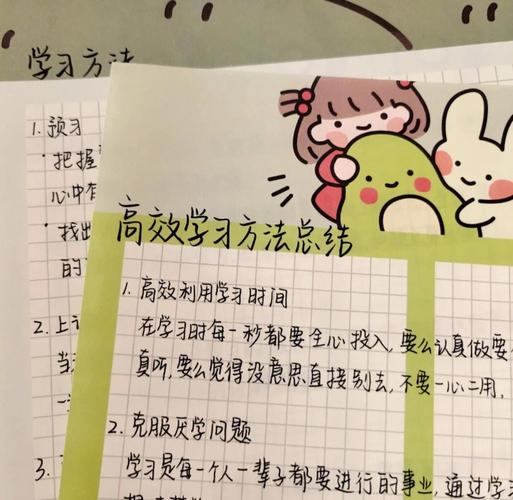 学习方法
1. 预习
· 把握
心中有
· 找出
的
2. 上
当
一
3.
高效学习方法总结
1. 高效利用学习时间
在学习时每一秒都要全心投入,要么认真做要
真听,要么觉得没意思直接别去,不要一心二用,
2. 克服厌学问题
学习是每一个人一辈子都要进行的事业,通过学